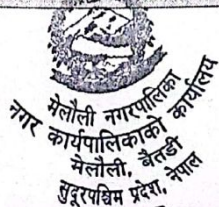 मेलौली नगरपालिका
नगर कार्यपालिकाको कार्यालय
मेलौली, बैतडी
सुदूरपश्चिम प्रदेश, नेपाल